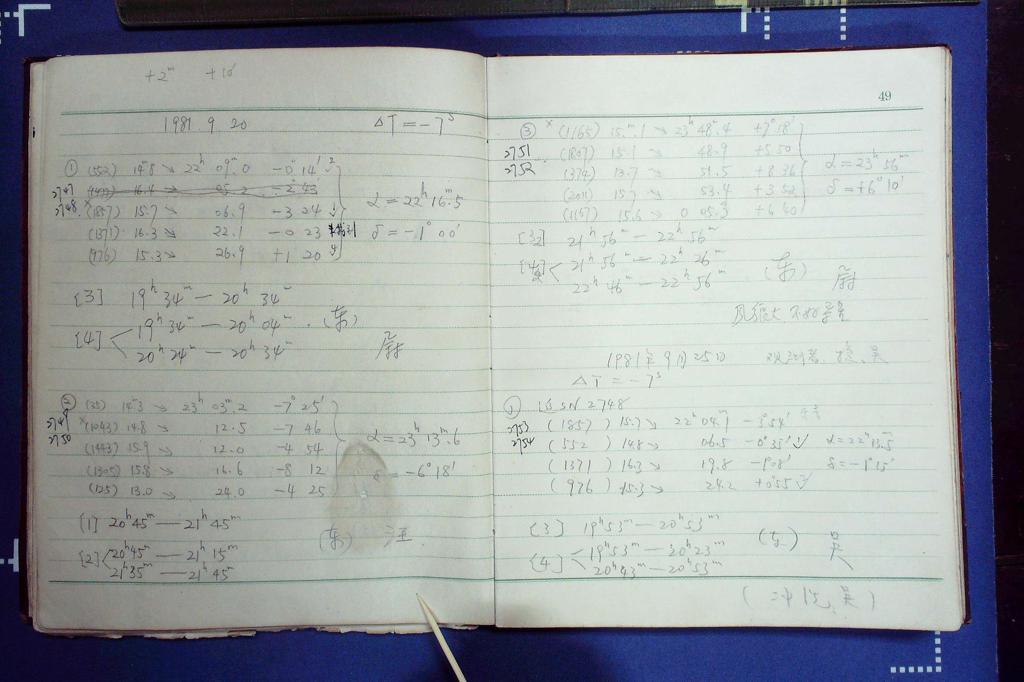 +2ᵐ +10′
1981.9.20 ΔT=-7ˢ
① (552) 14ᵐ8 ↘ 22ʰ 09ᵐ.0 -0° 14′
2747 (1493) 16.4 ↘ 05.2 -2 43
2748 ˣ(1857) 15.7 ↘ 06.9 -3 24
(1371) 16.3 ↘ 22.1 -0 23
(976) 15.3 ↘ 26.9 +1 20
α=22ʰ16ᵐ.5
δ=-1°00′
[3] 19ʰ34ᵐ—20ʰ34ᵐ
[4] < 19ʰ34ᵐ—20ʰ04ᵐ (东)
20ʰ24ᵐ—20ʰ34ᵐ
② (35) 14ᵐ3 ↘ 23ʰ 03ᵐ.2 -7° 25′
2749 ˣ(1043) 14.8 ↘ 12.5 -7 46
2750 (1443) 15.9 ↘ 12.0 -4 54
(1305) 15.8 ↘ 16.6 -8 12
(125) 13.0 ↘ 24.0 -4 25
α=23ʰ13ᵐ.6
δ=-6°18′
[1] 20ʰ45ᵐ—21ʰ45ᵐ (东) 汪
[2] < 20ʰ45ᵐ—21ʰ15ᵐ
21ʰ35ᵐ—21ʰ45ᵐ
49
③ ˣ(1165) 15ᵐ.1 ↘ 23ʰ48ᵐ.4 +7°18′
2751 (1807) 15.1 ↘ 48.9 +5.50
2752 (374) 13.7 ↘ 51.5 +8.36
(2011) 15.7 ↘ 53.4 +3.52
(1157) 15.6 ↘ 0 05.3 +6 40
α=23ʰ56ᵐ
δ=+6°10′
[3] 21ʰ56ᵐ—22ʰ56ᵐ
[4] < 21ʰ56ᵐ—22ʰ26ᵐ (东)
22ʰ46ᵐ—22ʰ56ᵐ
1981年9月25日 观测者
ΔT=-7ˢ
① SN 2748
2753 (1857) 15.7 ↘ 22ʰ04ᵐ.7 -3°54′
2754 (552) 14.8 06.5 -0°35′
(1371) 16.3 ↘ 19.8 -1°08′
(976) 15.3 ↘ 24.2 +0°55
α=22ʰ13.5ᵐ
δ=-1°15′
[3] 19ʰ53ᵐ—20ʰ53ᵐ (东) 吴
[4] < 19ʰ53ᵐ—20ʰ23ᵐ
20ʰ43ᵐ—20ʰ53ᵐ